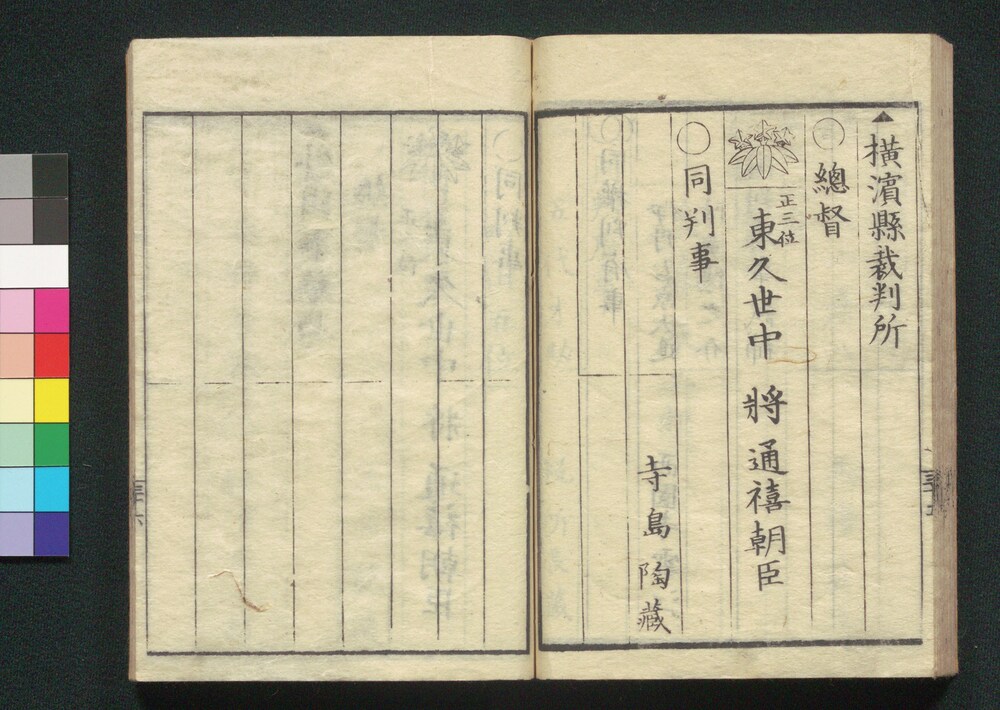 ▲横濱縣裁判所
○總督
正三位
東久世中將通禧朝臣
○同判事
寺島陶藏